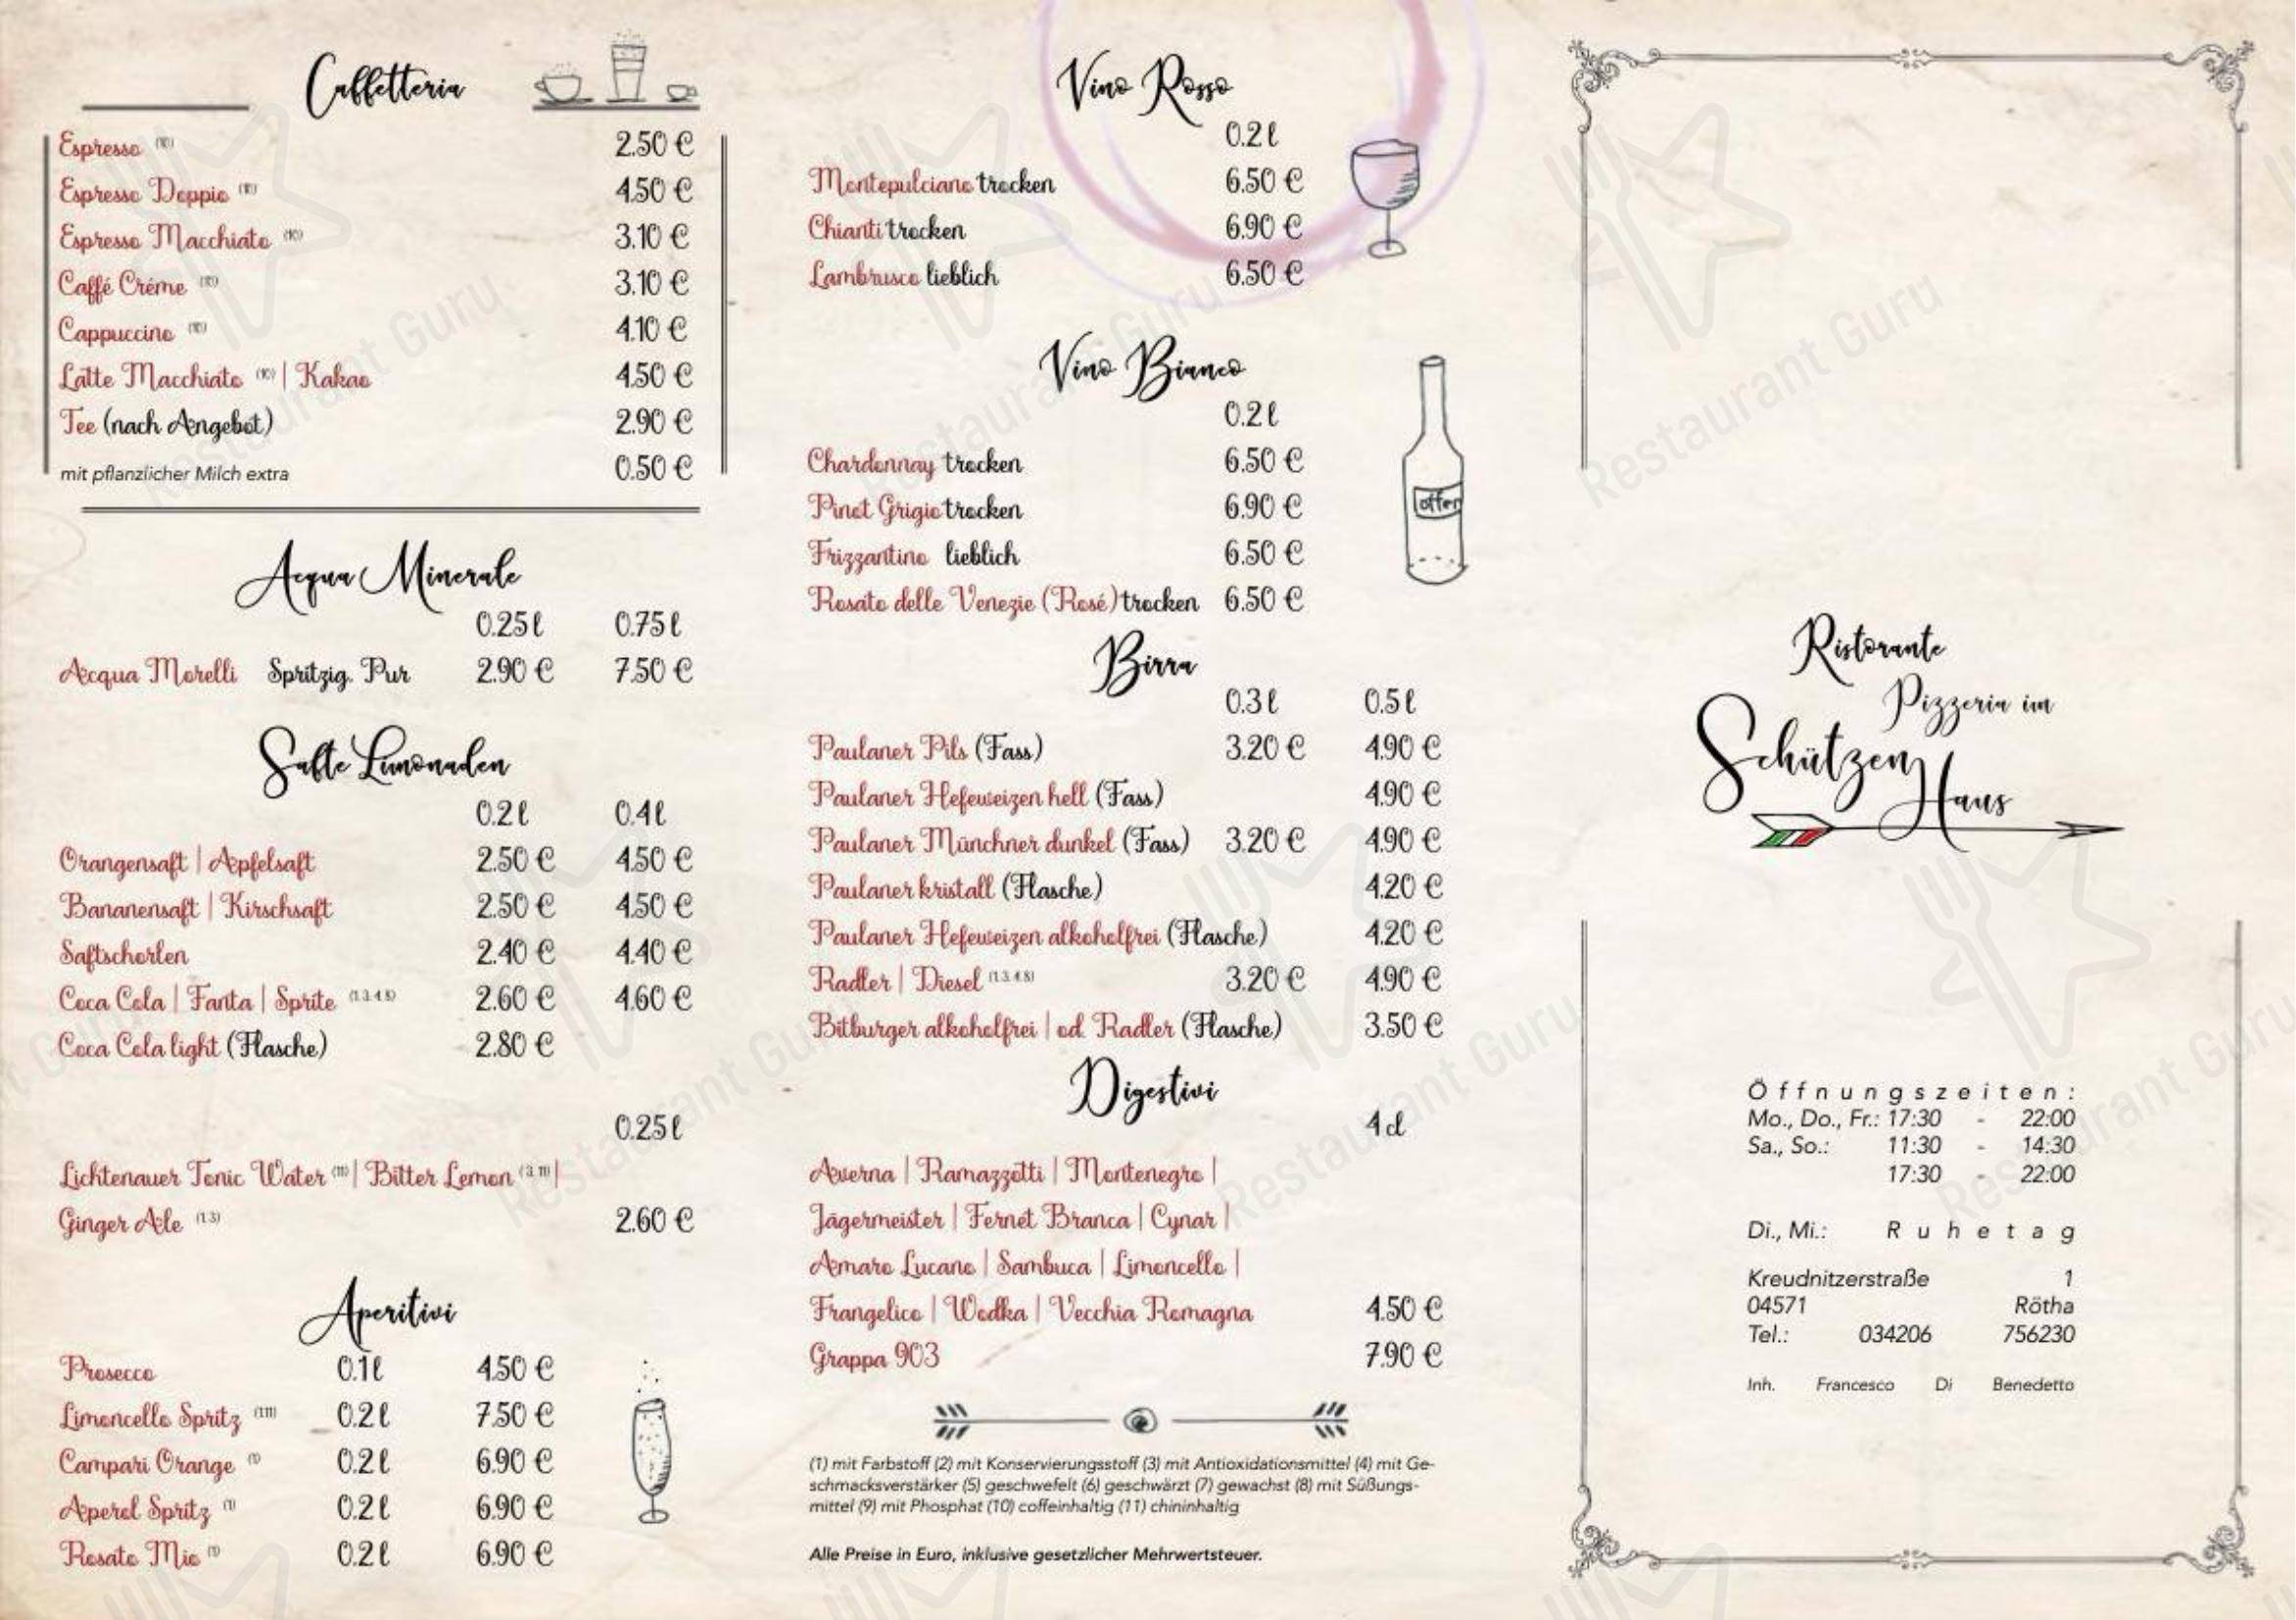 Caffetteria
Espresso (10) 2.50 €
Espresso Doppio (10) 4.50 €
Espresso Macchiato (10) 3.10 €
Caffé Créme (10) 3.10 €
Cappuccino (10) 4.10 €
Latte Macchiato (10) | Kakao 4.50 €
Tee (nach Angebot) 2.90 €
mit pflanzlicher Milch extra 0.50 €
Acqua Minerale
0.25 l 0.75 l
Acqua Morelli Spritzig. Pur 2.90 € 7.50 €
Safte Limonaden
0.2 l 0.4 l
Orangensaft | Apfelsaft 2.50 € 4.50 €
Bananensaft | Kirschsaft 2.50 € 4.50 €
Saftschorlen 2.40 € 4.40 €
Coca Cola | Fanta | Sprite (1.3.4.8) 2.60 € 4.60 €
Coca Cola light (Flasche) 2.80 €
0.25 l
Lichtenauer Tonic Water (11) | Bitter Lemon (3.11) |
Ginger Ale (1.3) 2.60 €
Aperitivi
Prosecco 0.1 l 4.50 €
Limoncello Spritz 0.2 l 7.50 €
Campari Orange (1) 0.2 l 6.90 €
Aperol Spritz (1) 0.2 l 6.90 €
Rosato Mio (1) 0.2 l 6.90 €
Vino Rosso
0.2 l
Montepulciano trocken 6.50 €
Chianti trocken 6.90 €
Lambrusco lieblich 6.50 €
Vino Bianco
0.2 l
offen
Chardonnay trocken 6.50 €
Pinot Grigio trocken 6.90 €
Frizzantino lieblich 6.50 €
Rosato delle Venezie (Rosé) trocken 6.50 €
Birra
0.3 l 0.5 l
Paulaner Pils (Fass) 3.20 € 4.90 €
Paulaner Hefeweizen hell (Fass) 4.90 €
Paulaner Münchner dunkel (Fass) 3.20 € 4.90 €
Paulaner kristall (Flasche) 4.20 €
Paulaner Hefeweizen alkoholfrei (Flasche) 4.20 €
Radler | Diesel (1.3.4.8) 3.20 € 4.90 €
Bitburger alkoholfrei | od. Radler (Flasche) 3.50 €
Digestivi
4 cl
Averna | Ramazzotti | Montenegro |
Jägermeister | Fernet Branca | Cynar |
Amaro Lucano | Sambuca | Limoncello |
Frangelico | Wodka | Vecchia Romagna 4.50 €
Grappa 903 7.90 €
(1) mit Farbstoff (2) mit Konservierungsstoff (3) mit Antioxidationsmittel (4) mit Ge-
schmacksverstärker (5) geschwefelt (6) geschwärzt (7) gewachst (8) mit Süßungs-
mittel (9) mit Phosphat (10) coffeinhaltig (11) chininhaltig
Alle Preise in Euro, inklusive gesetzlicher Mehrwertsteuer.
Ristorante
Pizzeria im
Schützen
Haus
Öffnungszeiten:
Mo., Do., Fr.: 17:30 - 22:00
Sa., So.: 11:30 - 14:30
17:30 - 22:00
Di., Mi.: Ruhetag
Kreudnitzerstraße 1
04571 Rötha
Tel.: 034206 756230
Inh. Francesco Di Benedetto
Restaurant Guru
Restaurant Guru
Restaurant Guru
Restaurant Guru
Restaurant Guru
Restaurant Guru